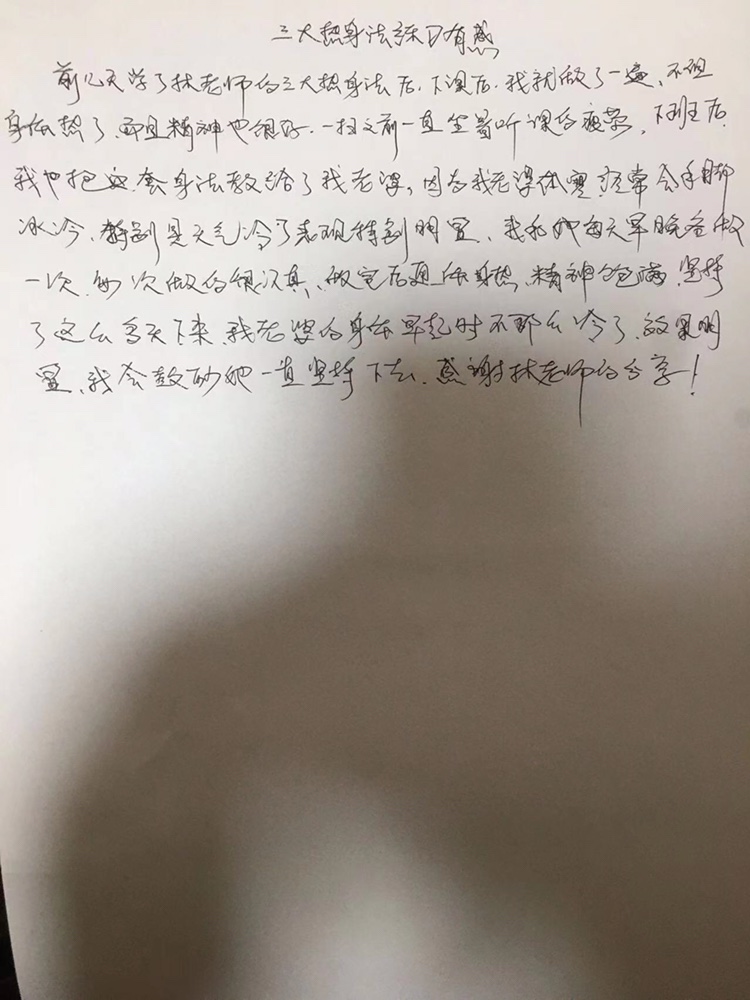 三大热身法练习有感
前几天学了林老师的三大热身法后.下课后.我就做了一遍、不但
身体热了、而且精神也很好.一扫之前一直坐着听课的疲劳、下班后.
我也把这套身法教给了我老婆，因为我老婆体寒，经常会手脚
冰冷、特别是天气冷了表现特别明显、我和她每天早晚各做
一次.每次做的很认真、做完后通体身热、精神饱满.坚持
了这么多天下来.我老婆的身体早起时不那么冷了.效果明
显、我会鼓励她一直坚持下去.感谢林老师的分享！